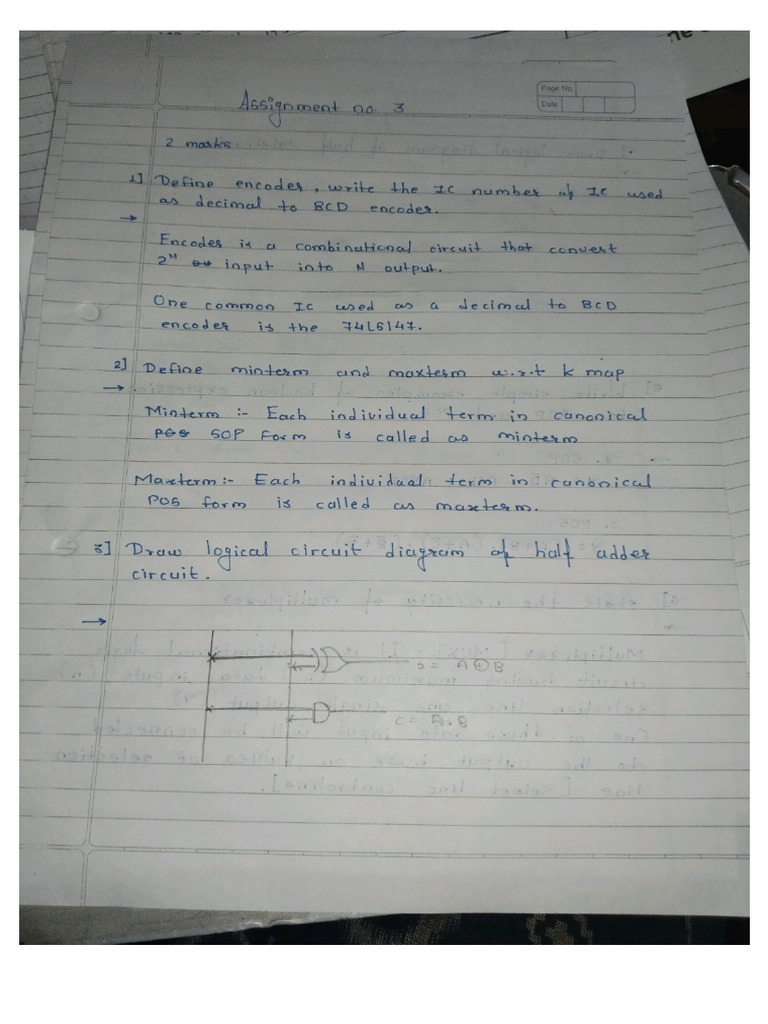 Page No.
Date
Assignment no. 3
2 marks
1] Define encoder, write the IC number of IC used
as decimal to BCD encoder.
→
Encoder is a combinational circuit that convert
2ᴺ input into N output.
One common IC used as a decimal to BCD
encoder is the 74LS147.
2] Define minterm and maxterm w.r.t k map
→
Minterm :- Each individual term in canonical
POS SOP form is called as minterm
Maxterm :- Each individual term in canonical
POS form is called as maxterm.
3] Draw logical circuit diagram of half adder
circuit.
→
S = A⊕B
C = A.B